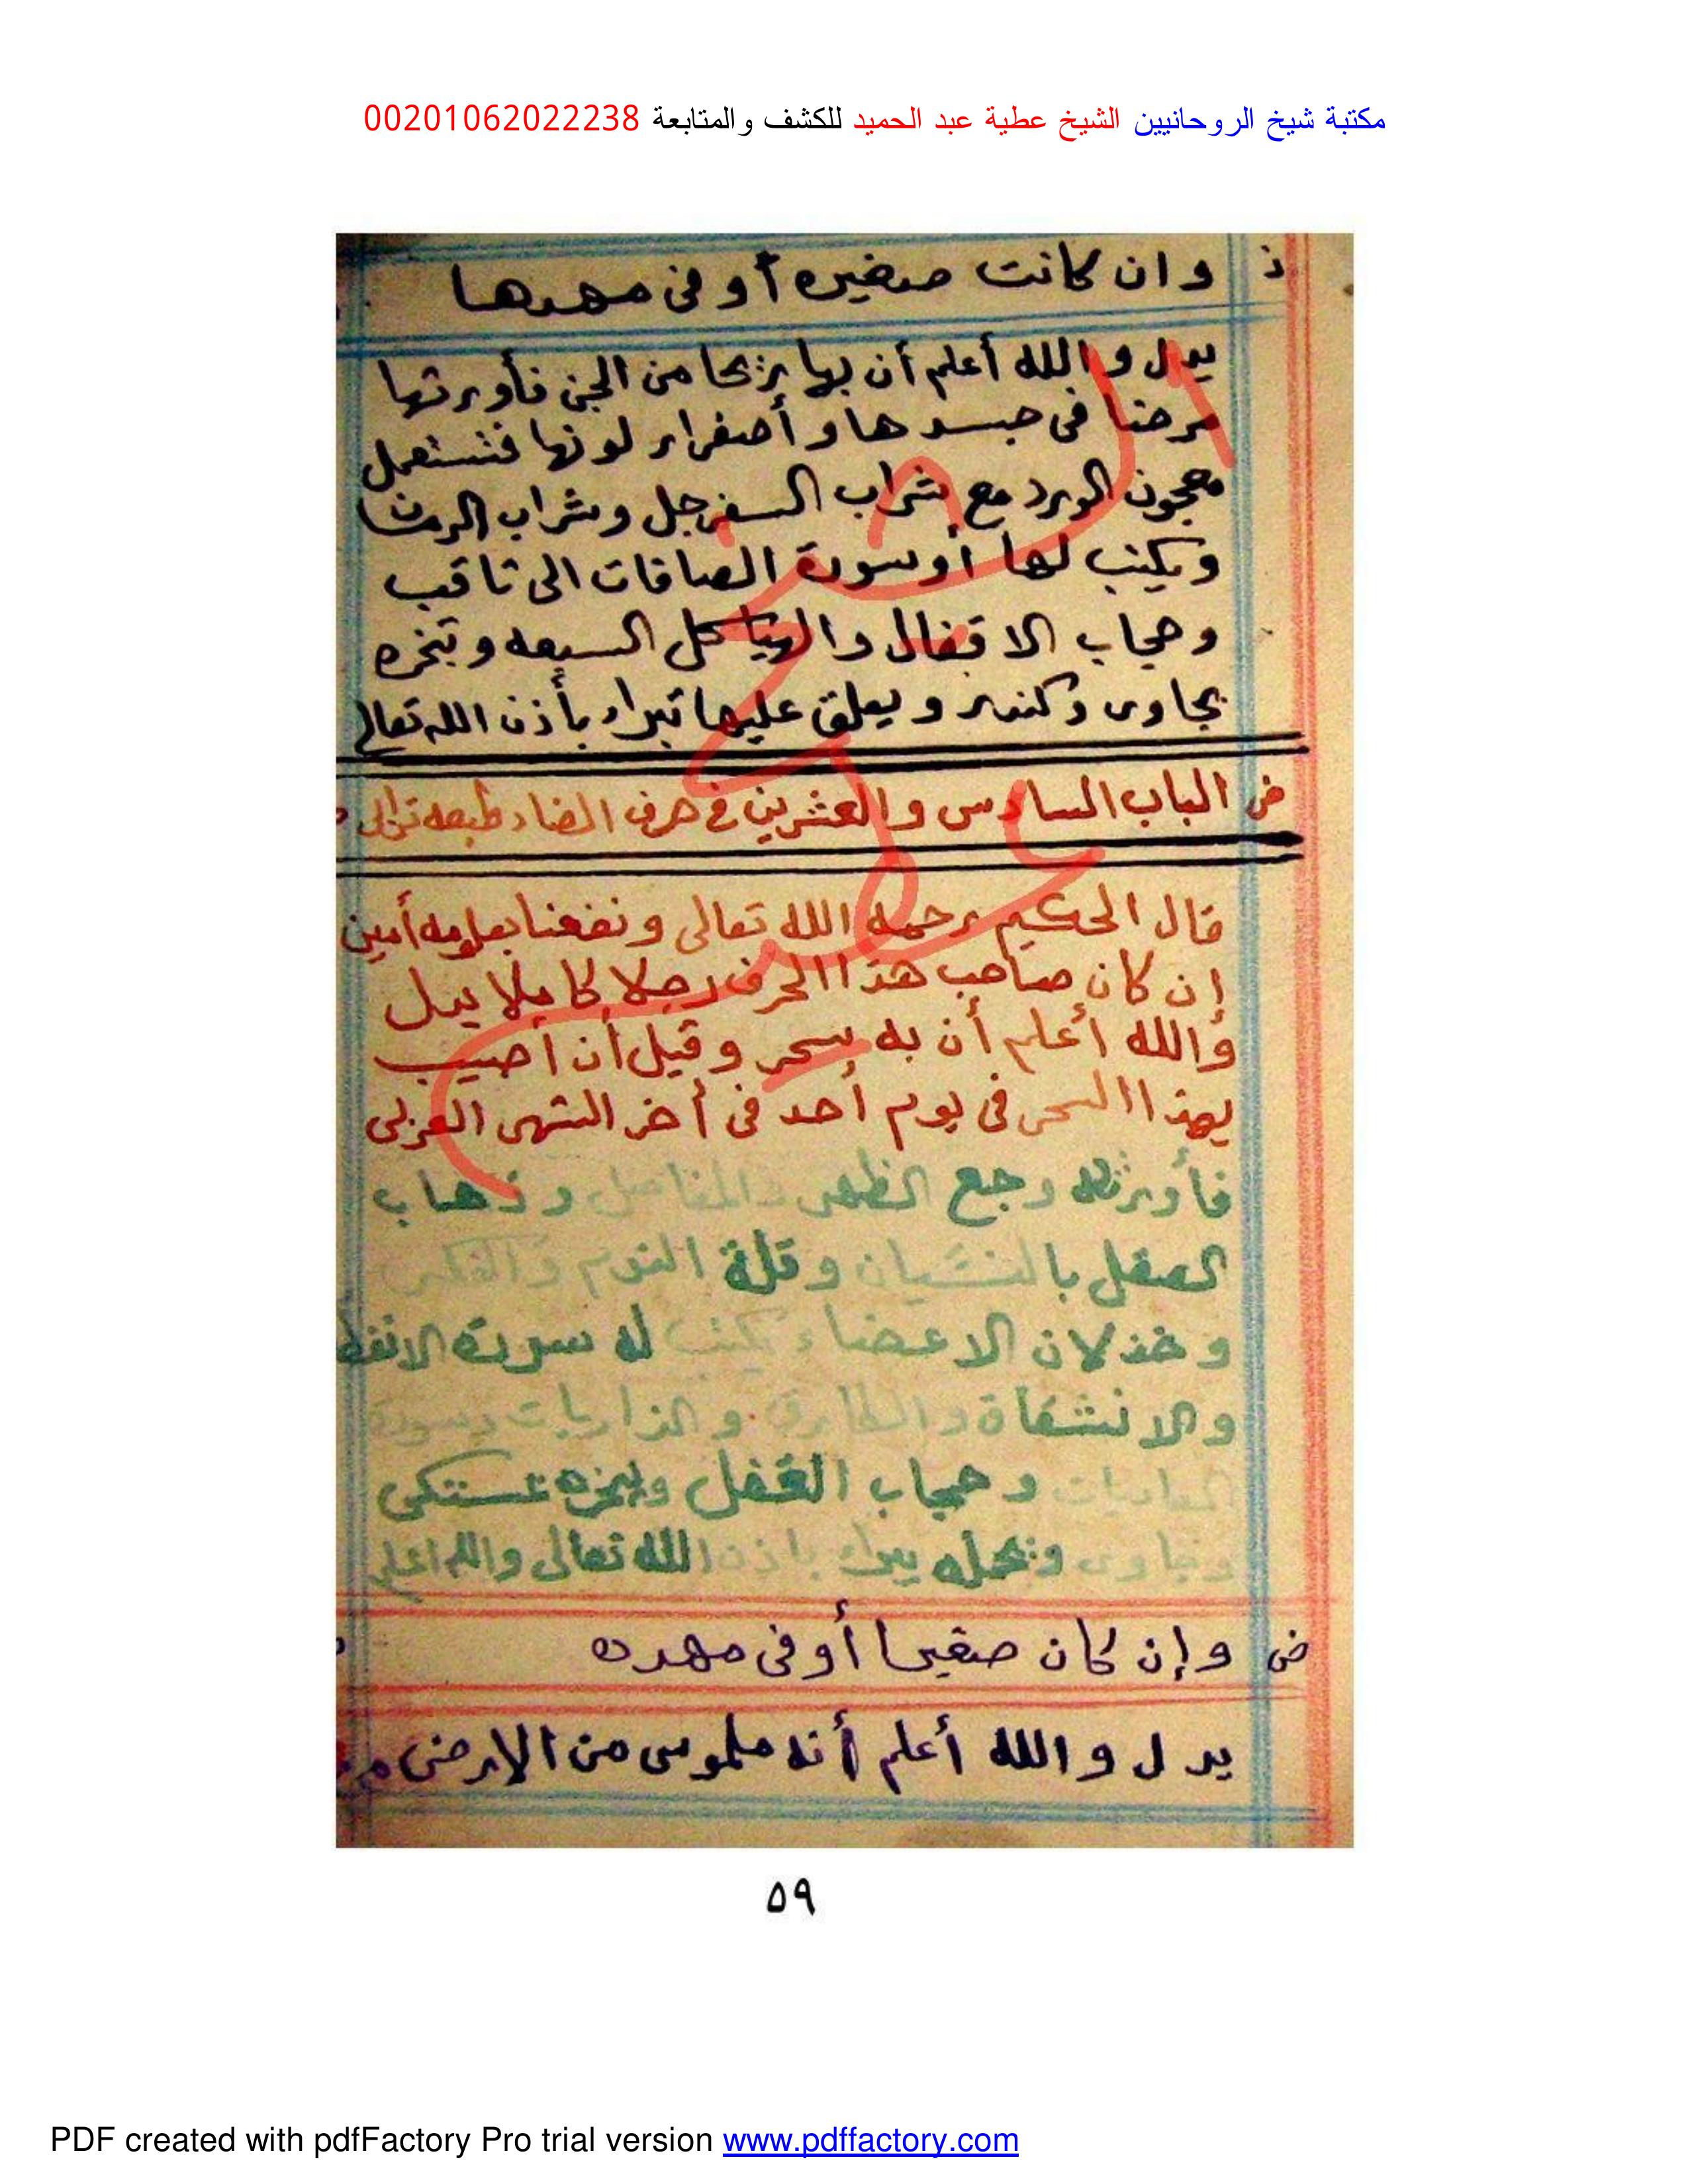 مكتبة شيخ الروحانيين الشيخ عطية عبد الحميد للكشف والمتابعة 00201062022238
ذ وان كانت صغيره أو فى مهدها
يدل والله أعلم أن بها ريحا من الجن فأورثها
مرضا فى جسدها وأصفرار لونها فتستعمل
معجون الورد مع شراب السفرجل وشراب الرمان
ويكتب لها أو سورة الصافات الى ثاقب
وحجاب الاقفال والهياكل السبعه وتبخره
بجاوى وكندر ويعلق عليها تبراء بأذن الله تعالى
ض الباب السادس والعشرين فى حرف الضاد طبعه ترابى
قال الحكيم رحمه الله تعالى ونفعنا بعلومه أمين
إن كان صاحب هذا الحرف رجلا كاملا يدل
والله أعلم أن به سحر وقيل أن أصيب
بهذا السحر فى يوم أحد فى أخر الشهر العربى
فأورثه وجع الظهر والمفاصل وذهاب
العقل بالنسيان وقلة النوم والفكر
وخذلان الاعضاء يكتب له سورة الانفطا
والانشقاق والطارق والذاريات وسورة
العاديات وحجاب القفل ويبخره بمستكى
وجاوى ويحمله يبراء باذن الله تعالى والله اعلم
ض وإن كان صغيرا أو فى مهده
يدل والله أعلم أنه ملموس من الارض
٥٩
PDF created with pdfFactory Pro trial version www.pdffactory.com